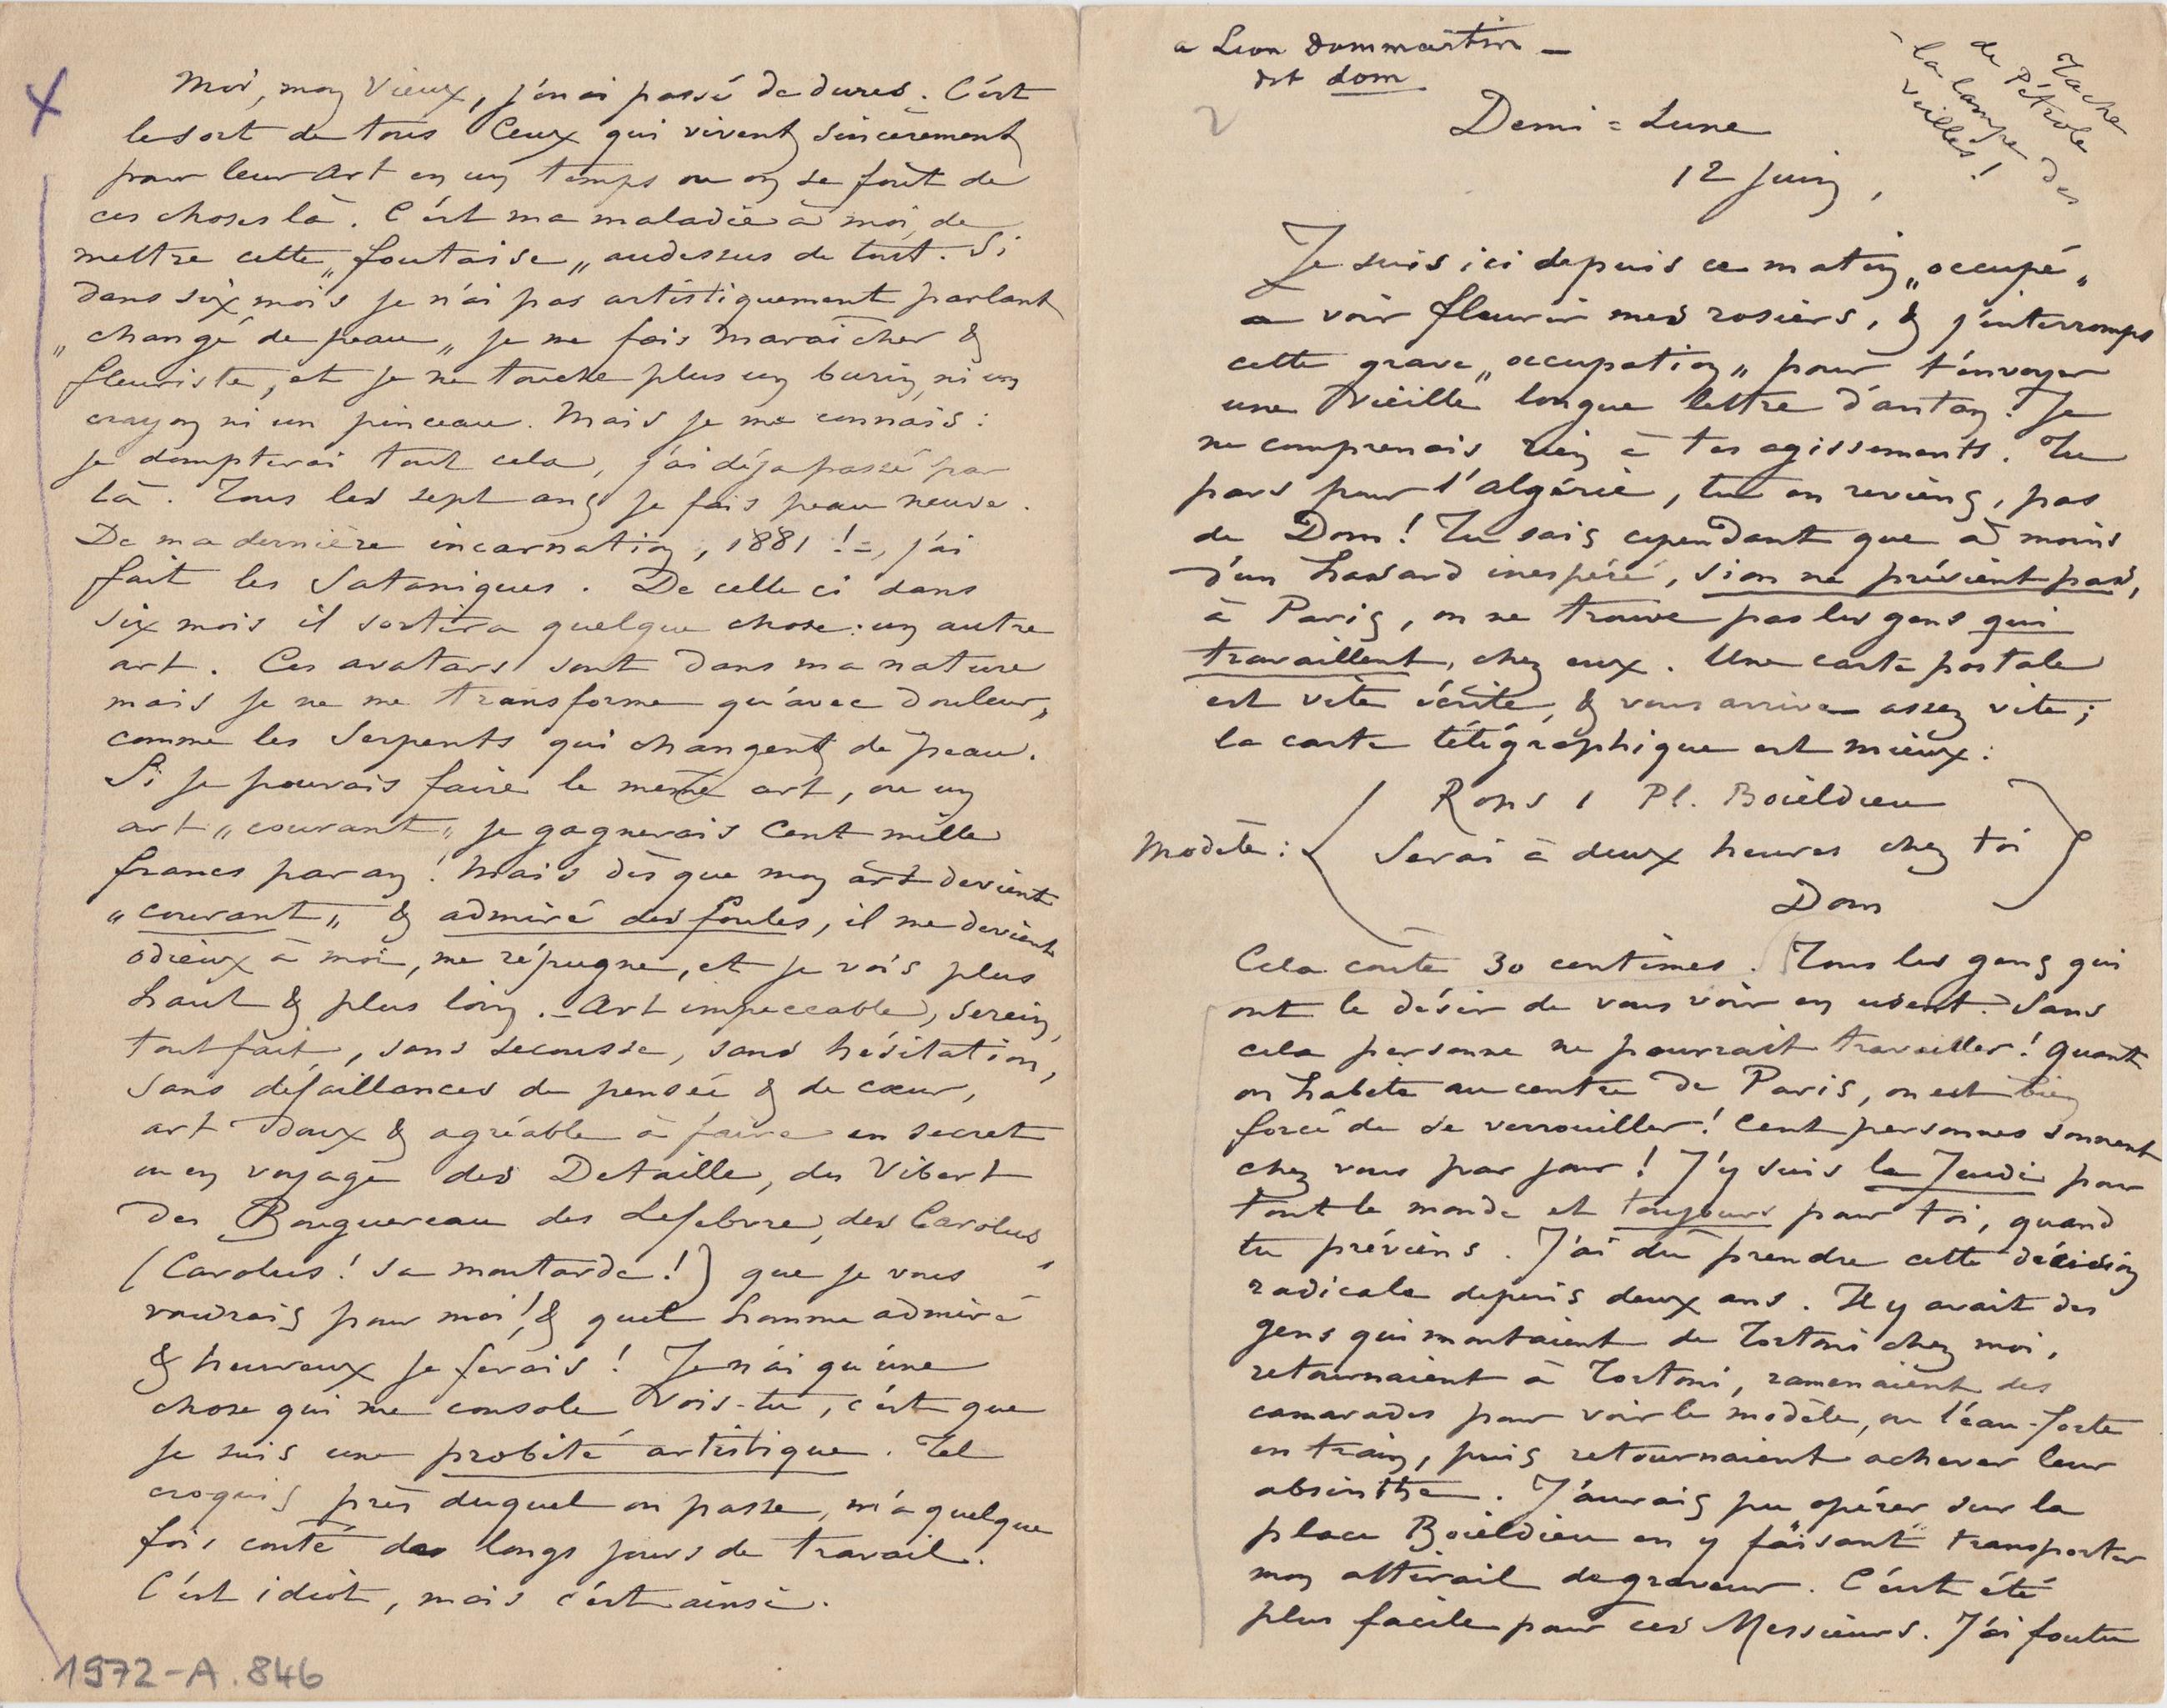 Moi, mon vieux, j'en ai passé de dures. C'est
le sort de tous ceux qui vivent sincèrement
pour leur art en un temps ou on se fout de
ces choses là. C'est ma maladie à moi, de
mettre cette „foutaise„ audessus de tout. Si
dans six mois je n'ai pas artistiquement parlant
„changé de peau„ je me fais maraîcher &
fleuriste, et je ne touche plus un burin, ni un
crayon ni un pinceau. Mais je me connais :
je dompterai tout cela, j'ai déja passé par
là. Tous les sept ans je fais peau neuve.
De ma dernière incarnation, 1881 !=, j'ai
fait les Sataniques. De celle ci dans
six mois il sortira quelque chose : un autre
art. Ces avatars sont dans ma nature
mais je ne me transforme qu'avec douleur,
comme les Serpents qui changent de peau.
Si je pouvais faire le même art, ou un
art „courant„ je gagnerais cent mille
francs par an ! Mais dès que mon art devient
„courant„ & admiré des foules, il me devient
odieux à moi, me répugne, et je vois plus
haut & plus loin. – Art impeccable, serein,
tout fait, sans secousse, sans hésitation,
sans défaillances de pensée & de cœur,
art doux & agréable à faire en secret
ou en voyage des Detaille, des Vibert
des Bouguereau des Lefebvre, des Carolus,
(Carolus ! sa moutarde !) que je vous
voudrais pour moi ! & quel homme admiré
& heureux je ferais ! Je n'ai qu'une
chose qui me console vois-tu, c'est que
je suis une probité artistique. Tel
croquis près duquel on passe, m'a quelque
fois couté des longs jours de travail.
C'est idiot, mais c'est ainsi.
1972-A.846
a Leon Dommartin –
dit Dom
2
Tache
de Pétrole
– la lampe des
veilles !
Demi = Lune
12 Juin,
Je suis ici depuis ce matin „occupé„
a voir fleurir mes rosiers, & j'interromps
cette grave „occupation„ pour t'envoyer
une vieille longue lettre d'antan. Je
ne comprenais rien à tes agissements. Tu
pars pour l'algérie, tu en reviens, pas
de Dom ! Tu sais cependant que à moins
d'un hasard inespéré, si on ne prévient pas,
à Paris, on ne trouve pas les gens qui
travaillent, chez eux. Une carte postale
est vite écrite, & vous arrive assez vite ;
la carte télégraphique est mieux :
Rops 1 Pl. Boiëldieu
Modèle : Serai à deux heures chez toi
Dom
Cela coute 30 centimes. Tous les gens qui
ont le désir de vous voir en usent. Sans
cela personne ne pourrait travailler ! Quand
on habite au centre de Paris, on est bien
forcé de se verrouiller ! Cent personnes sonnent
chez vous par jour ! J'y suis le Jeudi pour
tout le monde et toujours pour toi, quand
tu préviens. J'ai dû prendre cette décision
radicale depuis deux ans. Il y avait des
gens qui montaient de Tortoni chez moi,
retournaient à Tortoni, ramenaient des
camarades pour voir le modèle, ou l'eau-forte
en train, puis retournaient achever leur
absinthe. J'aurais pu „opérer„ sur la
place Boiëldieu en y faisant transporter
mon attirail de graveur. C'eut été
plus facile pour ces Messieurs. J'ai foutu